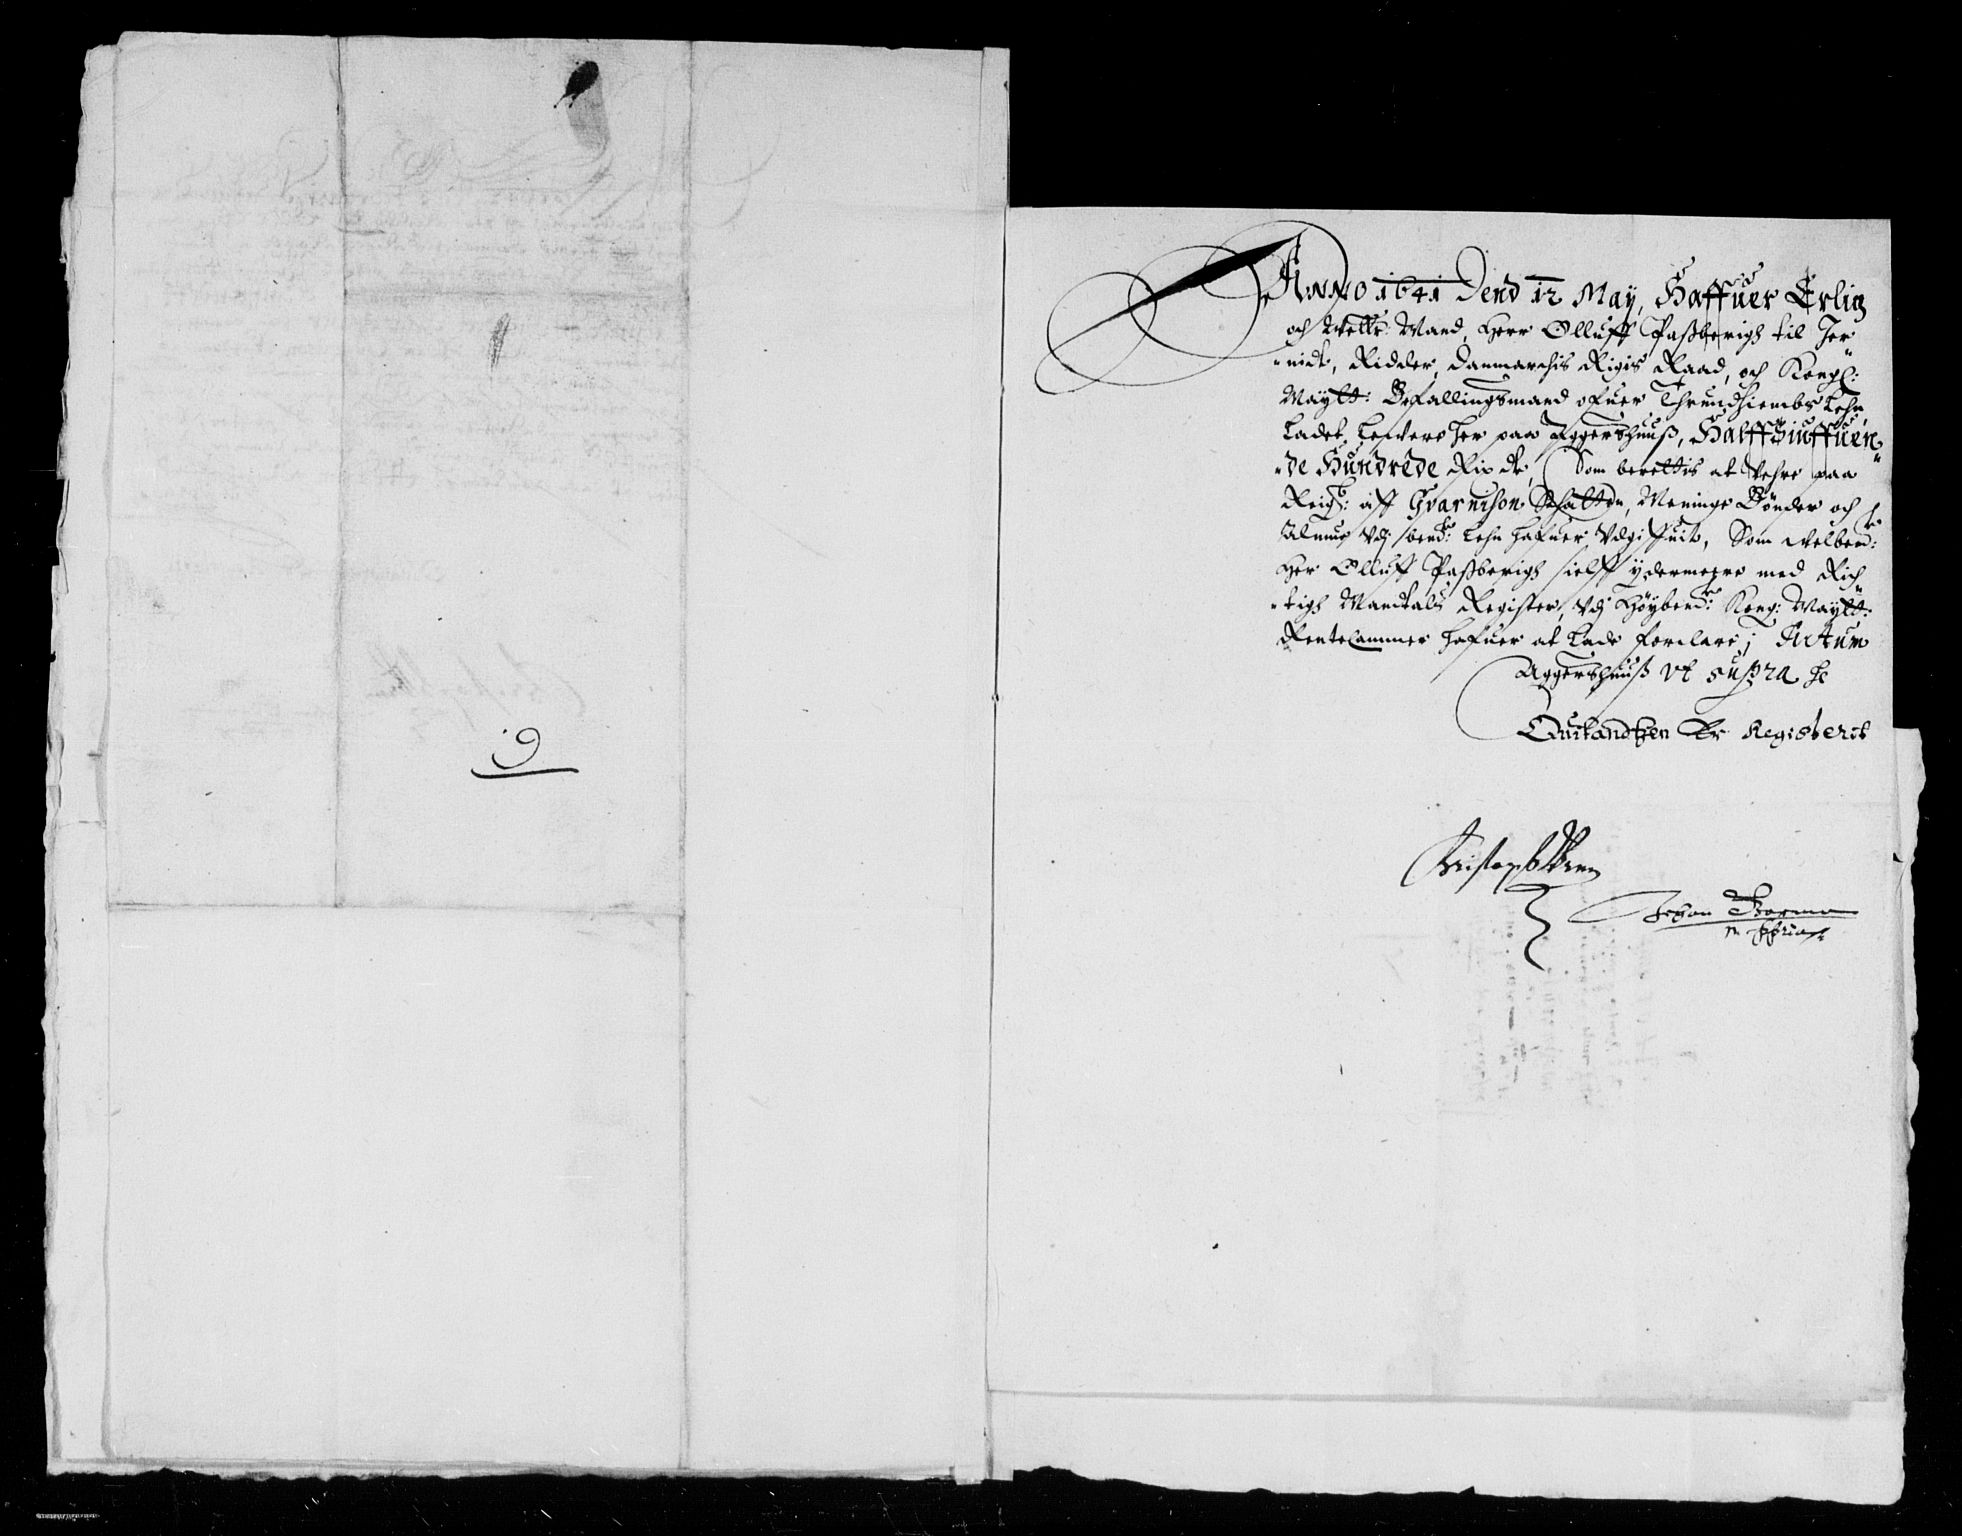 9
Anno 1641 Dend 12 May, Haffuer Erlig
och Welb: Mand, Herr Olluff Passberigh til Jer
nidt, Ridder, Danmarchis Rigis Raad, och Kongl:
Maytt: Befallingsmand ofuer Thrundhiembs Lehn,
Ladet Leuere her paa Aggershuuss, Halfftziuffuen
de Hundrede Rix dr, Som berettis at vehre paa
Reig: aff Gvarnison Schatten, Menige Bønder och
Almue Vdj bend: Lehn hafuer Vdgiffuit, Som Welbend:
Her Olluff Passberigh sielff ydermehre med Rich
tigh Mandtals Register, Vdj Høybend: Kong: Maytt:
Rentecammer hafuer at Lade forclare; Actum
Aggershuuss vt supra
Quitandtzen Er Registerit
Christopher
Johan
m ppria